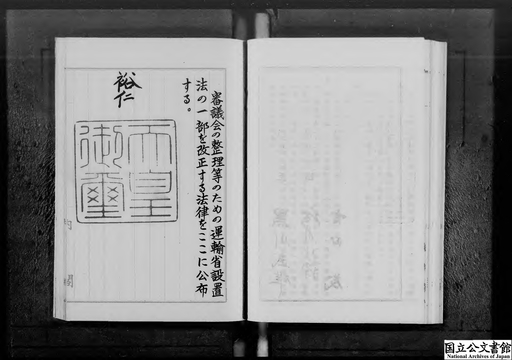 審議会の整理等のための運輸省設置
法の一部を改正する法律をここに公布
する。
裕仁
天皇
御璽
内閣
国立公文書館
National Archives of Japan